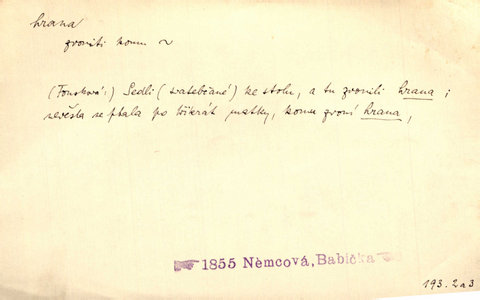 hrana
zvoniti komu ~
(Fousková:) Sedli (svatebčané) ke stolu, a tu zvonili hrana;
nevěsta se ptala po třikrát matky, komu zvoní hrana,
1855 Němcová, Babička
193. 2 a 3